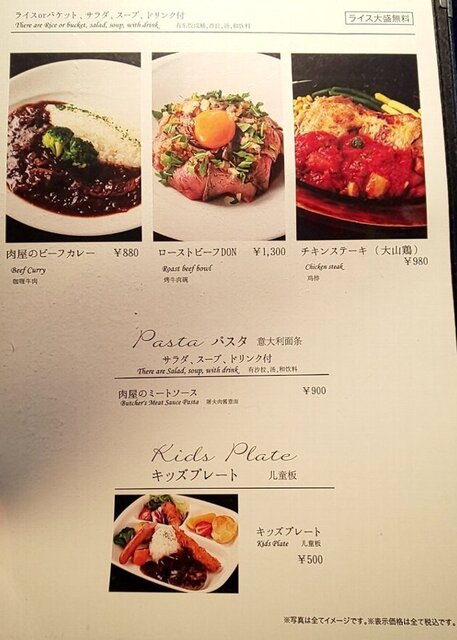 ライスorバケット、サラダ、スープ、ドリンク付
There are Rice or bucket, salad, soup, with drink
ライス大盛無料
肉屋のビーフカレー ￥880
Beef Curry
咖喱牛肉
ローストビーフDON ￥1,300
Roast beef bowl
烤牛肉碗
チキンステーキ（大山鶏） ￥980
Chicken steak
鸡排
Pasta パスタ 意大利面条
サラダ、スープ、ドリンク付
There are Salad, soup, with drink 有沙拉,汤,和饮料
肉屋のミートソース ￥900
Butcher's Meat Sauce Pasta 屠夫肉酱意面
Kids Plate
キッズプレート 儿童板
キッズプレート
Kids Plate 儿童板
￥500
※写真は全てイメージです。※表示価格は全て税込です。